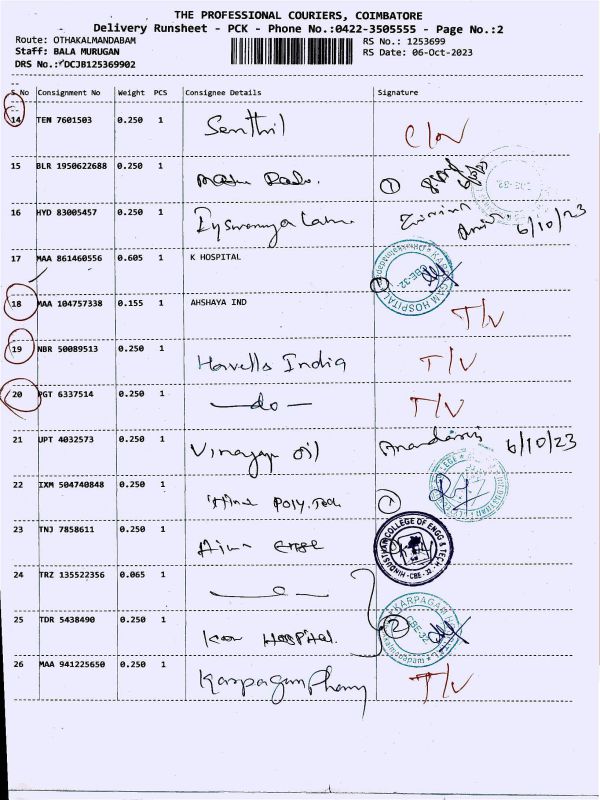 THE PROFESSIONAL COURIERS, COIMBATORE
Delivery Runsheet - PCK - Phone No.:0422-3505555 - Page No.:2
Route: OTHAKALMANDABAM RS No.: 1253699
Staff: BALA MURUGAN RS Date: 06-Oct-2023
DRS No.: DCJB125369902
S No Consignment No Weight PCS Consignee Details Signature
14 TEN 7601503 0.250 1 Senthil
15 BLR 1950622688 0.250 1
16 HYD 83005457 0.250 1 6/10/23
17 MAA 861460556 0.605 1 K HOSPITAL
18 MAA 104757338 0.155 1 AHSHAYA IND T/V
19 NBR 50089513 0.250 1 Havells India T/V
20 PGT 6337514 0.250 1 —do— T/V
21 UPT 4032573 0.250 1 Vinayaga oil 6/10/23
22 IXM 504740848 0.250 1 Poly.Tech
23 TNJ 7858611 0.250 1
HINDUSTHAN COLLEGE OF ENGG & TECH CBE - 32
24 TRZ 135522356 0.065 1
25 TDR 5438490 0.250 1 HOSPITAL. 2
CBE-32
26 MAA 941225650 0.250 1 Karpagam Phamy T/V